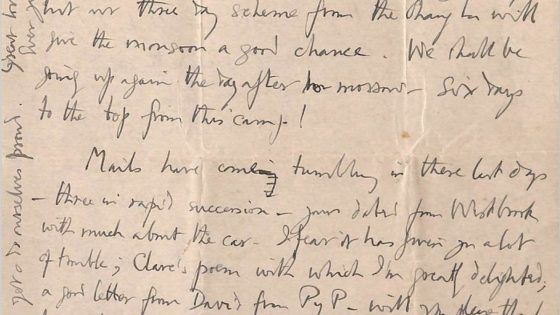 but our three day scheme from the Chang La will
give the monsoon a good chance. We shall be
going up again the day after to morrow – Six days
to the top from this camp!
Mails have come tumbling in these last days
– three in rapid succession – yours dated from Westbrook
with much about the car – I fear it has given you a lot
of trouble; Clare's poem with which I'm greatly delighted;
a good letter from David from Pyp – will you
got & do ourselves proud. Great